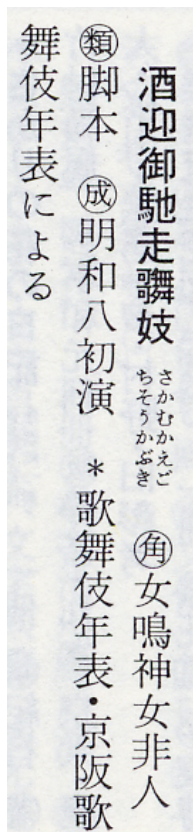 酒迎御馳走歌舞妓 さかむかえご ちそうかぶき ㊎女鳴神女非人
㊝脚本 ㊛明和八初演 ＊歌舞伎年表・京阪歌
舞伎年表による